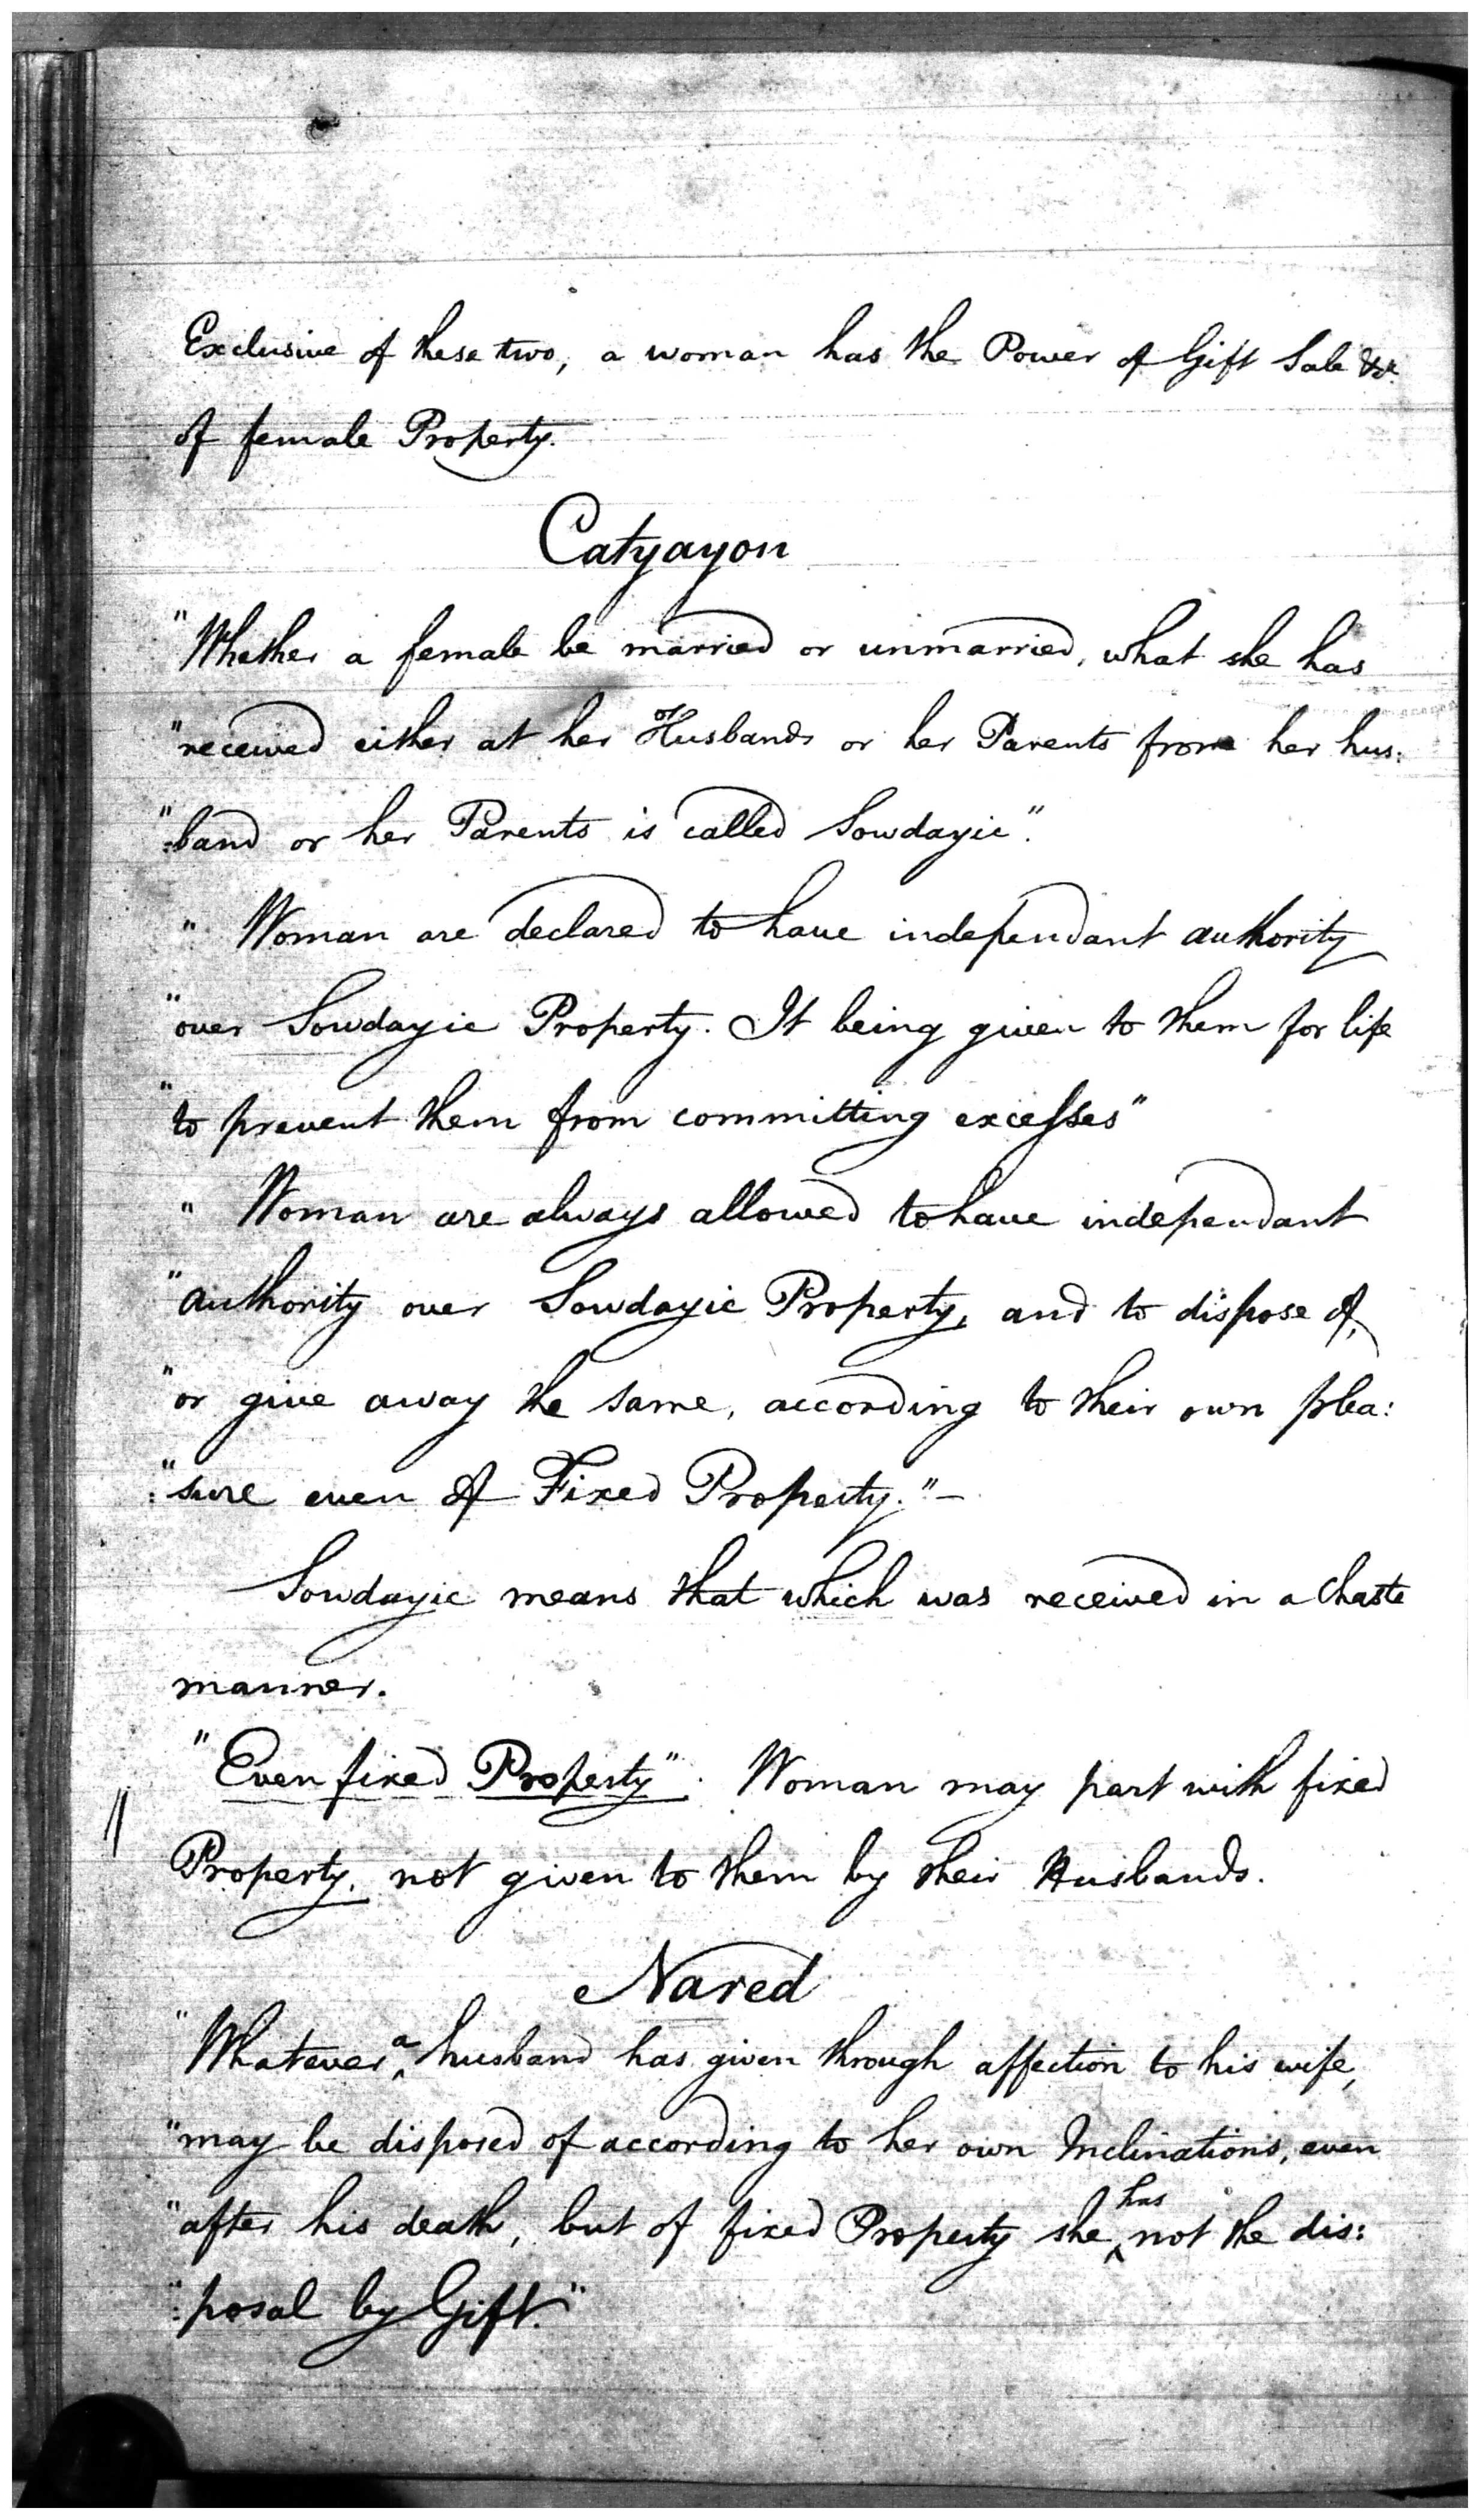 Exclusive of these two, a woman has the Power of Gift Sale &c.
of female Property.
Catyayon
"Whether a female be married or unmarried, what she has
"received either at her Husbands or her Parents from her hus:
":band or her Parents is called Sowdayic".
" Woman are declared to have independant authority
"over Sowdayic Property. It being given to them for life
"to prevent them from committing excesses"
" Woman are always allowed to have independant
"authority over Sowdayic Property, and to dispose of,
"or give away the same, according to their own plea:
":sure even of Fixed Property."—
Sowdayic means that which was received in a Chaste
manner.
"Even fixed Property". Woman may part with fixed
Property, not given to them by their Husbands.
Nared
"Whatever a husband has given through affection to his wife,
"may be disposed of according to her own Inclinations, even
"after his death, but of fixed Property she has not the dis:
":posal by Gift."